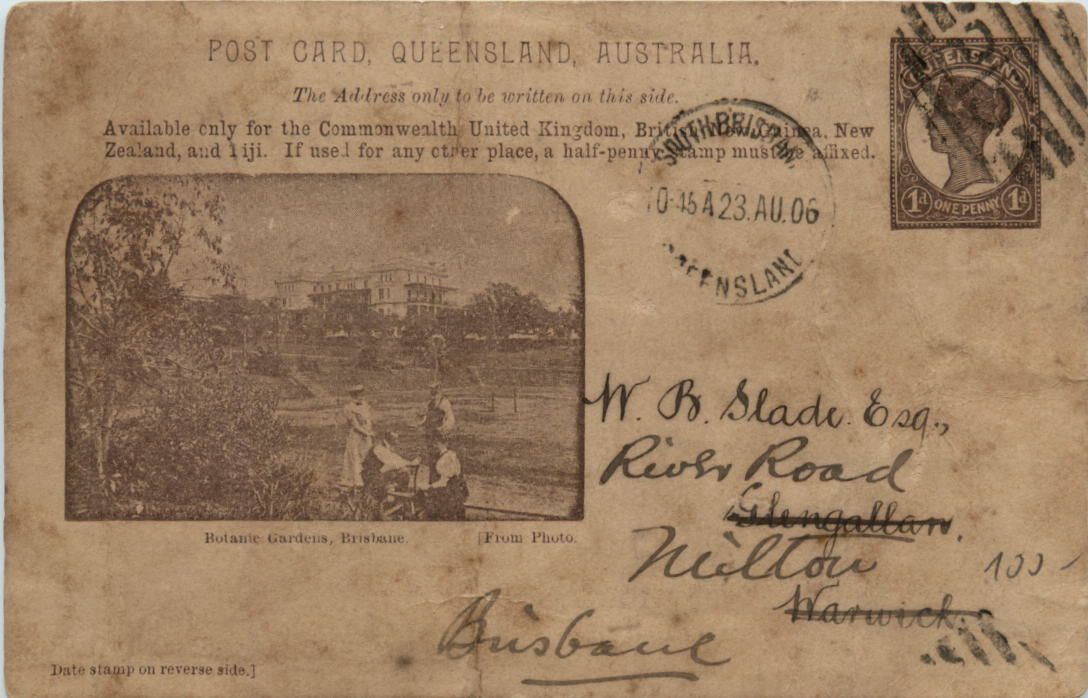 POST CARD, QUEENSLAND, AUSTRALIA.
The Address only to be written on this side.
Available only for the Commonwealth United Kingdom, British New Guinea, New
Zealand, and Fiji. If used for any other place, a half-penny stamp must be affixed.
QUEENSLAND
1d ONE PENNY 1d
SOUTH BRISBANE,
10-45 A 23. AU. 06
QUEENSLAND
W. B. Slade Esq.,
River Road
Glengallan,
Milton
100
Warwick.
Brisbane
Botanic Gardens, Brisbane. [From Photo.
Date stamp on reverse side.]